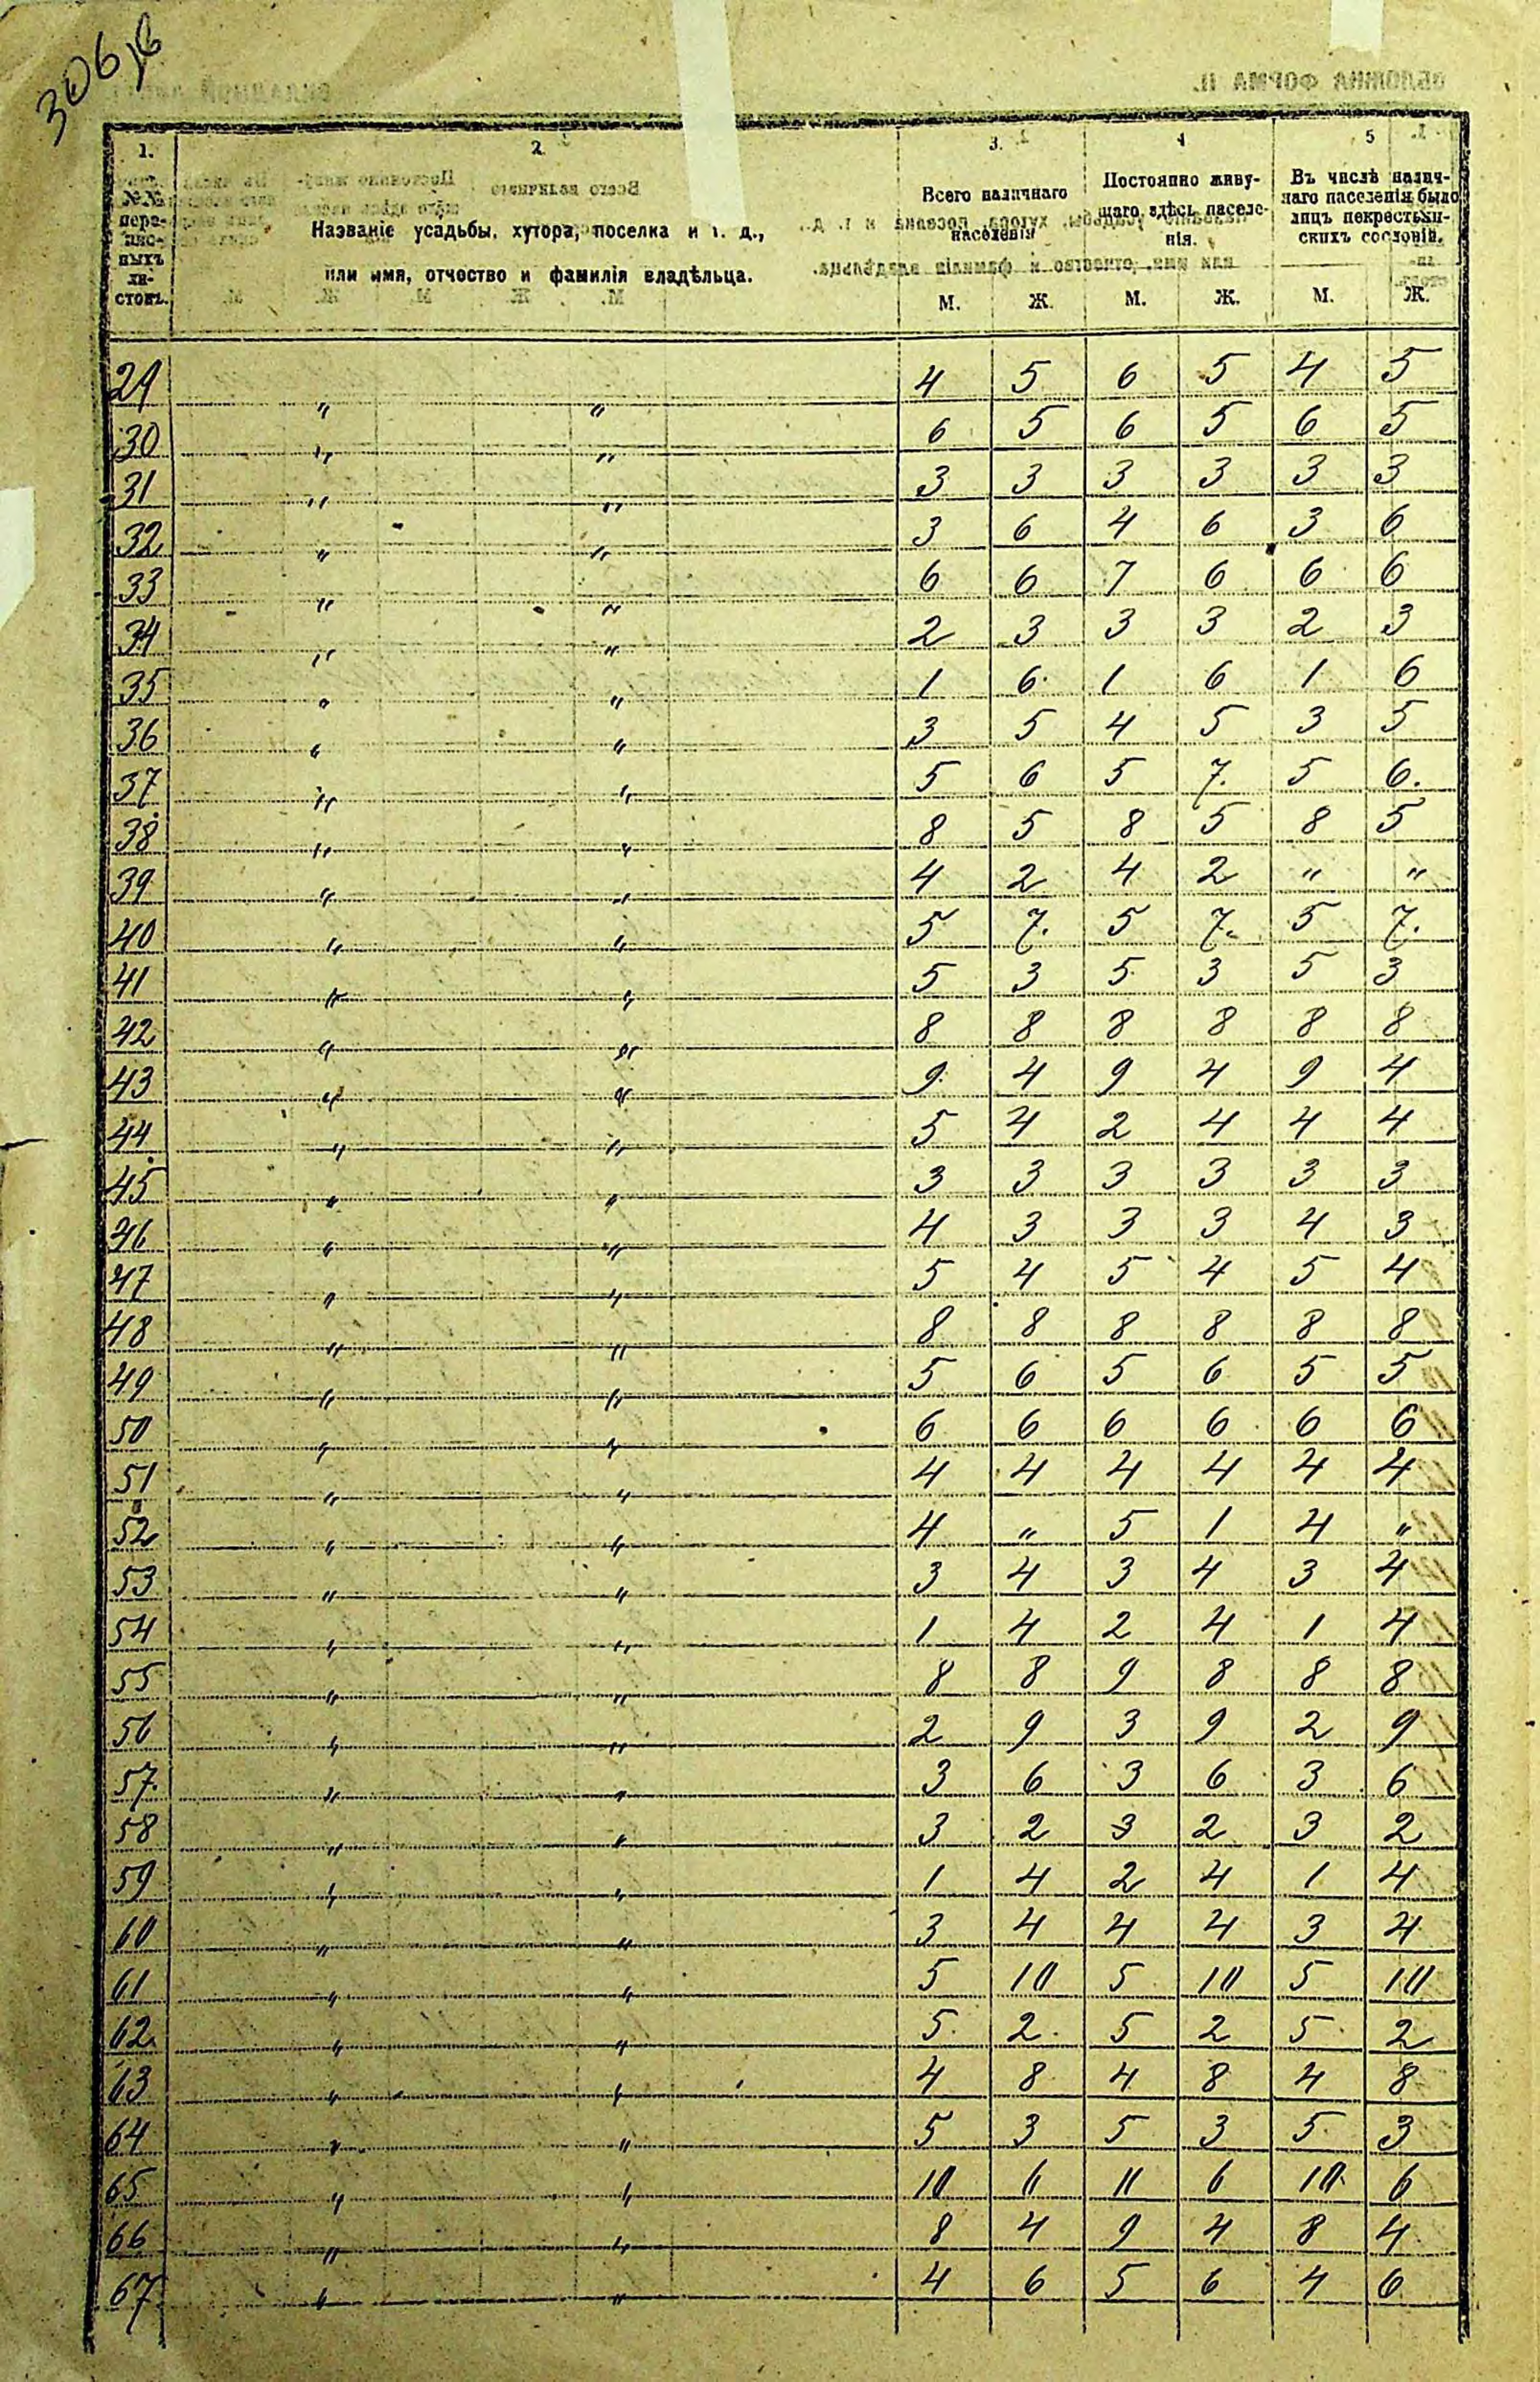 306
1. 2. 3. 4 5
№№ пере- пис- ныхъ ли- стовъ. Названіе усадьбы, хутора, поселка и т. д., или имя, отчество и фамилія владѣльца. Всего наличнаго населенія Постоянно живу- щаго здѣсь населе- нія. Въ числѣ налич- наго населенія было лицъ некрестьян- скихъ сословій.
М. Ж. М. Ж. М. Ж.
29 " " 4 5 6 5 4 5
30 " " 6 5 6 5 6 5
31 " " 3 3 3 3 3 3
32 " " 3 6 4 6 3 6
33 " " 6 6 7 6 6 6
34 " " 2 3 3 3 2 3
35 " " 1 6 1 6 1 6
36 " " 3 5 4 5 3 5
37 " " 5 6 5 7. 5 6.
38 " " 8 5 8 5 8 5
39 " " 4 2 4 2 " "
40 " " 5 7. 5 7. 5 7.
41 " " 5 3 5 3 5 3
42 " " 8 8 8 8 8 8
43 " " 9 4 9 4 9 4
44 " " 5 4 2 4 4 4
45 " " 3 3 3 3 3 3
46 " " 4 3 3 3 4 3
47 " " 5 4 5 4 5 4
48 " " 8 8 8 8 8 8
49 " " 5 6 5 6 5 5
50 " " 6 6 6 6 6 6
51 " " 4 4 4 4 4 4
52 " " 4 " 5 1 4 "
53 " " 3 4 3 4 3 4
54 " " 1 4 2 4 1 4
55 " " 8 8 9 8 8 8
56 " " 2 9 3 9 2 9
57. " " 3 6 3 6 3 6
58 " " 3 2 3 2 3 2
59 " " 1 4 2 4 1 4
60 " " 3 4 4 4 3 4
61 " " 5 10 5 10 5 10
62 " " 5 2 5 2 5 2
63 " " 4 8 4 8 4 8
64 " " 5 3 5 3 5 3
65 " " 10 6 11 6 10 6
66 " " 8 4 9 4 8 4
67 " " 4 6 5 6 4 6